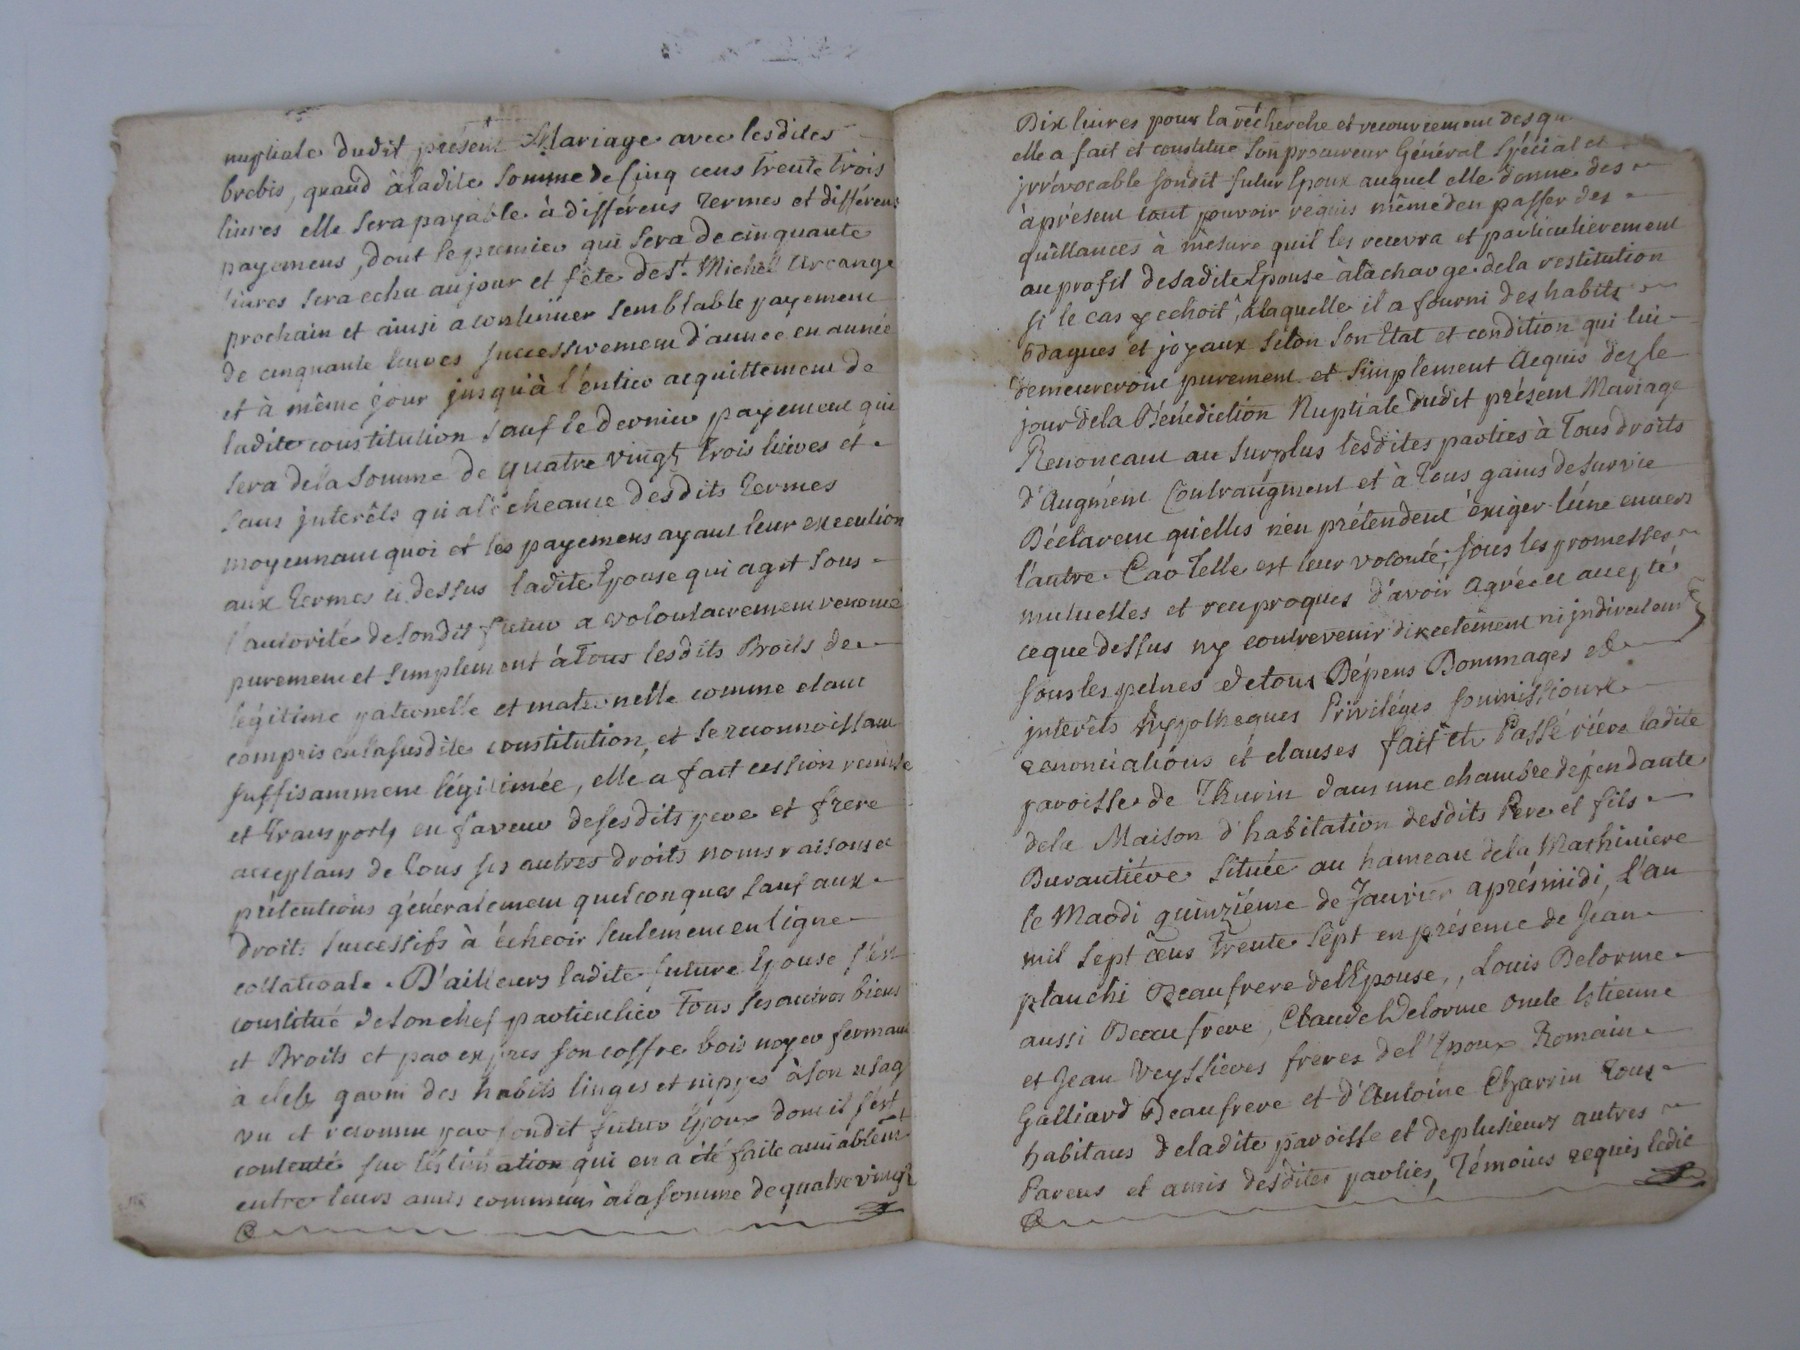 nuptiale dudit présent Mariage avec lesdites
brebis, quand à ladite somme de Cinq cens trente trois
livres elle sera payable à différens termes et différens
payemens, dont le premier qui sera de cinquante
livres sera echu au jour et fête de St. Michel Arcange
prochain et ainsi a continuer semblable payement
de cinquante livres successivement d'année en année
et à même jour jusqu'à l'entier acquittement de
ladite constitution sauf le dernier payement qui
sera de la somme de quatre vingt trois livres et
sans interêts qu'a l'écheance desdits termes
moyennant quoi et les payemens ayant leur execution
aux termes ci dessus ladite Epouse qui agit sous
l'autorité de sondit futur a volontairement renoncé
purement et simplement à tous lesdits Droits de
légitime paternelle et maternelle comme etant
compris en la susdite constitution, et se reconnoissant
suffisamment légitimée, elle a fait cession remise
et transports en faveur de sesdits pere et frere
acceptans de tous ses autres droits noms raisons et
prétentions généralement quelconques sauf aux
droits successifs à écheoir seulement en ligne
collaterale. D'ailleurs ladite future Epouse s'est
constitué de son chef particulier tous ses autres biens
et Droits et par expres son coffre bois noyer fermant
à clefs garni des habits linges et nippes à son usag
vu et reconnu par sondit futur Epoux dont il s'est
contenté sur l'éstimation qui en a été faite amiablemt
entre leurs amis communs à la somme de quatre vingt
Dix livres pour la récherche et recouvrement desqu
elle a fait et constitué son procureur Général Spécial et
irrévocable sondit futur Epoux auquel elle donne des
à présent tout pouvoir requis même d'en passer des
quittances à mesure quil les recevra et particulierement
au profit de sadite Epouse à la charge de la restitution
si le cas y echoit, à laquelle il a fourni des habits
bdagues et joyaux selon son Etat et condition qui lui
demeureront purement et simplement Acquis dez le
jour de la Bénédiction Nuptiale dudit présent Mariage
Renoncant au surplus lesdites parties à tous droits
d'Augment Contraugment et à tous gains de survie
Déclarent qu'elles n'en prétendent éxiger l'une envers
l'autre. Car telle est leur volonté, sous les promesses
mutuelles et reciproques d'avoir agréé et accepté
ce que dessus ny contrevenir directement ni indirectemt
sous les peines de tous Dépens Dommages et
interêts hypotheques Priviléges soumissions
renonciations et clauses fait et Passé riére ladite
paroisse de Thurin dans une chambre dépendante
de la Maison d'habitation desdits Pere et fils
Durantiére située au hameau de la Mathiniere
le Mardi quinziéme de Janvier aprésmidi, l'an
mil sept cens trente sept en présence de Jean
planchi Beaufrere de l'Epouse, Louis Delorme
aussi Beaufrere, Claude Delorme oncle Estienne
et Jean Veyssieres freres de l'Epoux Romain
Galliard Beaufrere et d'Antoine Charrin tous
habitans de ladite paroisse et de plusieurs autres
Parens et amis desdites parties, témoins requis ledit